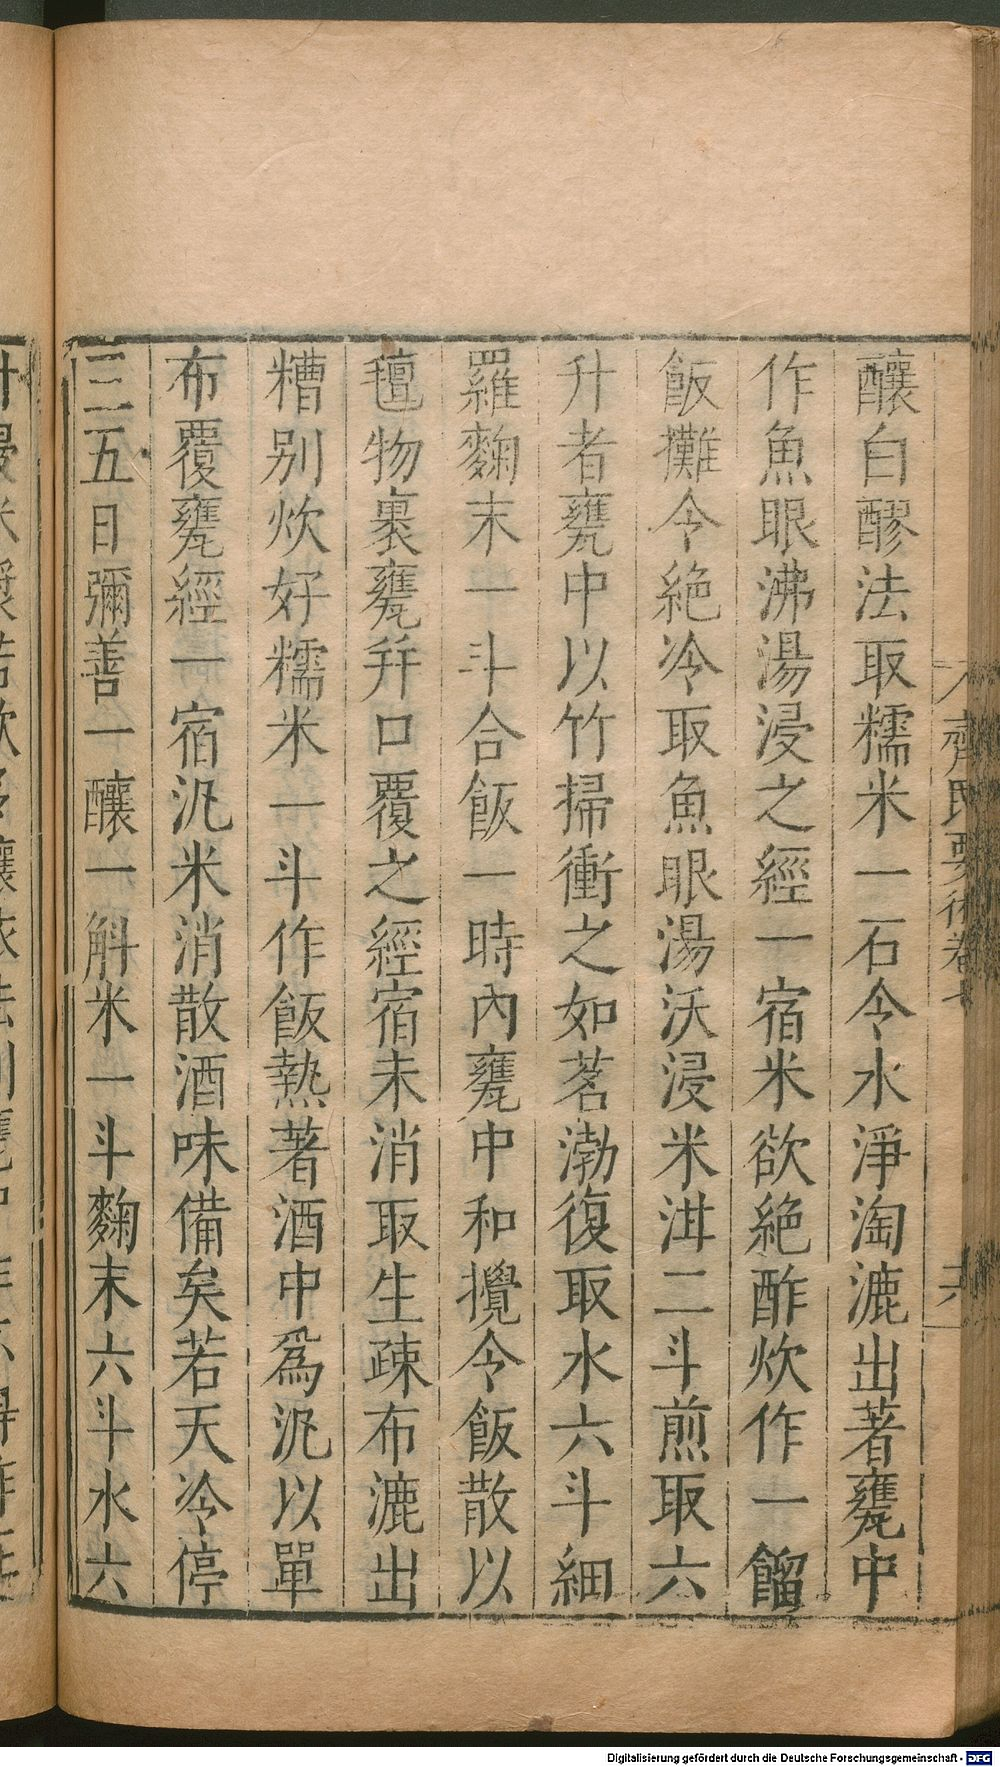 齊民要術卷七
十六
釀白醪法取糯米一石令水淨淘漉出著甕中
作魚眼沸湯浸之經一宿米欲絶酢炊作一餾
飯攤令絶冷取魚眼湯沃浸米泔二斗煎取六
升者甕中以竹掃衝之如茗渤復取水六斗細
羅麴末一斗合飯一時內甕中和攪令飯散以
氊物裹甕幷口覆之經宿未消取生疎布漉出
糟别炊好糯米一斗作飯熱著酒中爲汎以單
布覆甕經一宿汎米消散酒味備矣若天冷停
三五日彌善一釀一斛米一斗麴末六斗水六
Digitalisierung gefördert durch die Deutsche Forschungsgemeinschaft - DFG